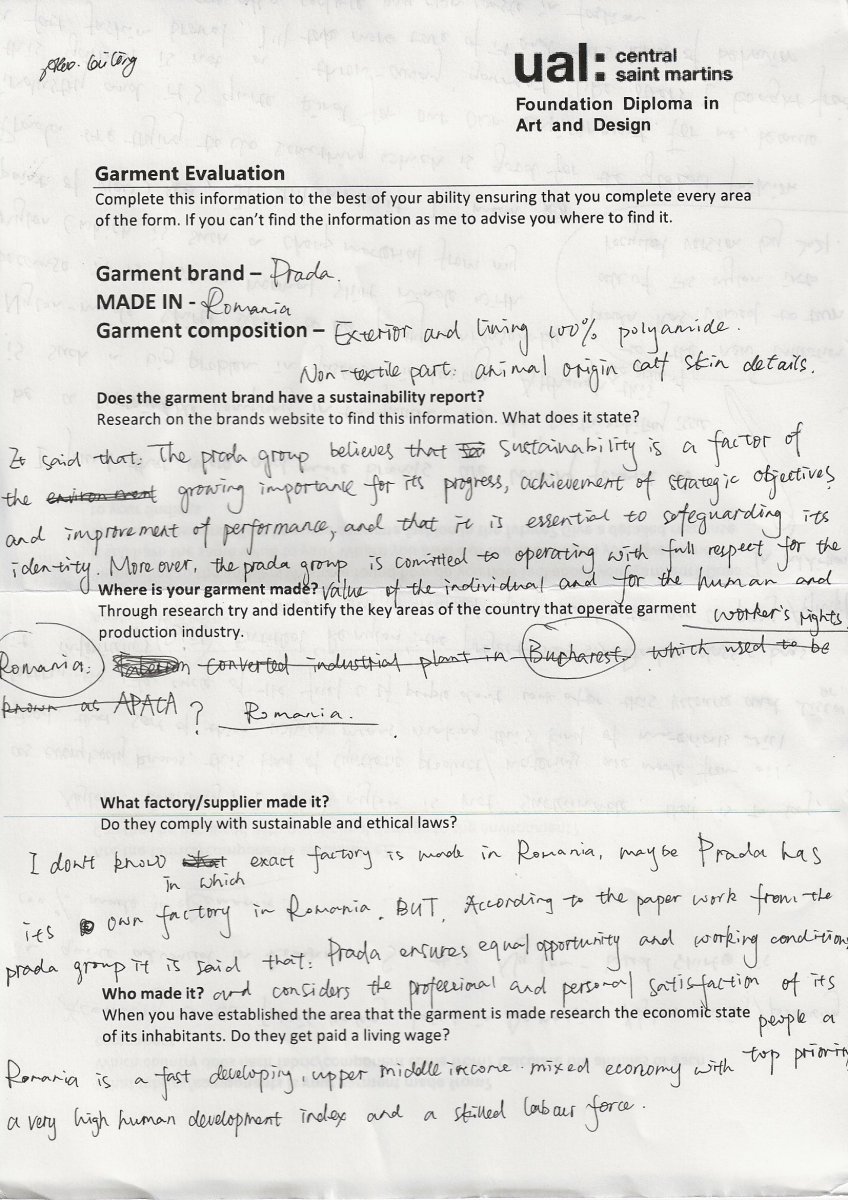 ual: central
saint martins
Foundation Diploma in
Art and Design
Garment Evaluation
Complete this information to the best of your ability ensuring that you complete every area
of the form. If you can't find the information as me to advise you where to find it.
Garment brand – Prada.
MADE IN - Romania
Garment composition – Exterior and lining 100% polyamide.
Non-textile part: animal origin calf skin details.
Does the garment brand have a sustainability report?
Research on the brands website to find this information. What does it state?
It said that: The prada group believes that sustainability is a factor of
the environment growing importance for its progress, achievement of strategic objectives
and improvement of performance, and that it is essential to safeguarding its
identity. More over, the prada group is comitted to operating with full respect for the
Where is your garment made? value of the individual and for the human and
Through research try and identify the key areas of the country that operate garment worker's rights
production industry.
Romania: converted industrial plant in Bucharest. which used to be
known as APACA ? Romania.
What factory/supplier made it?
Do they comply with sustainable and ethical laws?
I don't know what exact factory is made in Romania, maybe Prada has
in which
its own factory in Romania. BUT, According to the paper work from the
prada group it is said that: Prada ensures equal opportunity and working conditions
Who made it? and considers the professional and personal satisfaction of its
When you have established the area that the garment is made research the economic state people a
of its inhabitants. Do they get paid a living wage?
Romania is a fast developing, upper middle income mixed economy with top priority
a very high human development index and a skilled labour force.